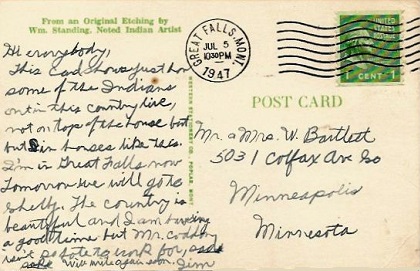 From an Original Etching by
Wm. Standing, Noted Indian Artist
Hi everybody,
This Card shows just how
some of the Indians
out in this country live,
not on top of the house but
but in houses like this.
I'm in Great Falls now
Tomorrow we will go to
Shelby. The country is
beautiful and I am having
a good time but Mr.
to work for
Will write again soon. Jim
GREAT FALLS, MONT.
JUL 5
1030 PM
1947
UNITED STATES POSTAGE
1 CENT 1
POST CARD
Mr. & Mrs. W. Bartlett
5031 Colfax Ave So
Minneapolis
Minnesota